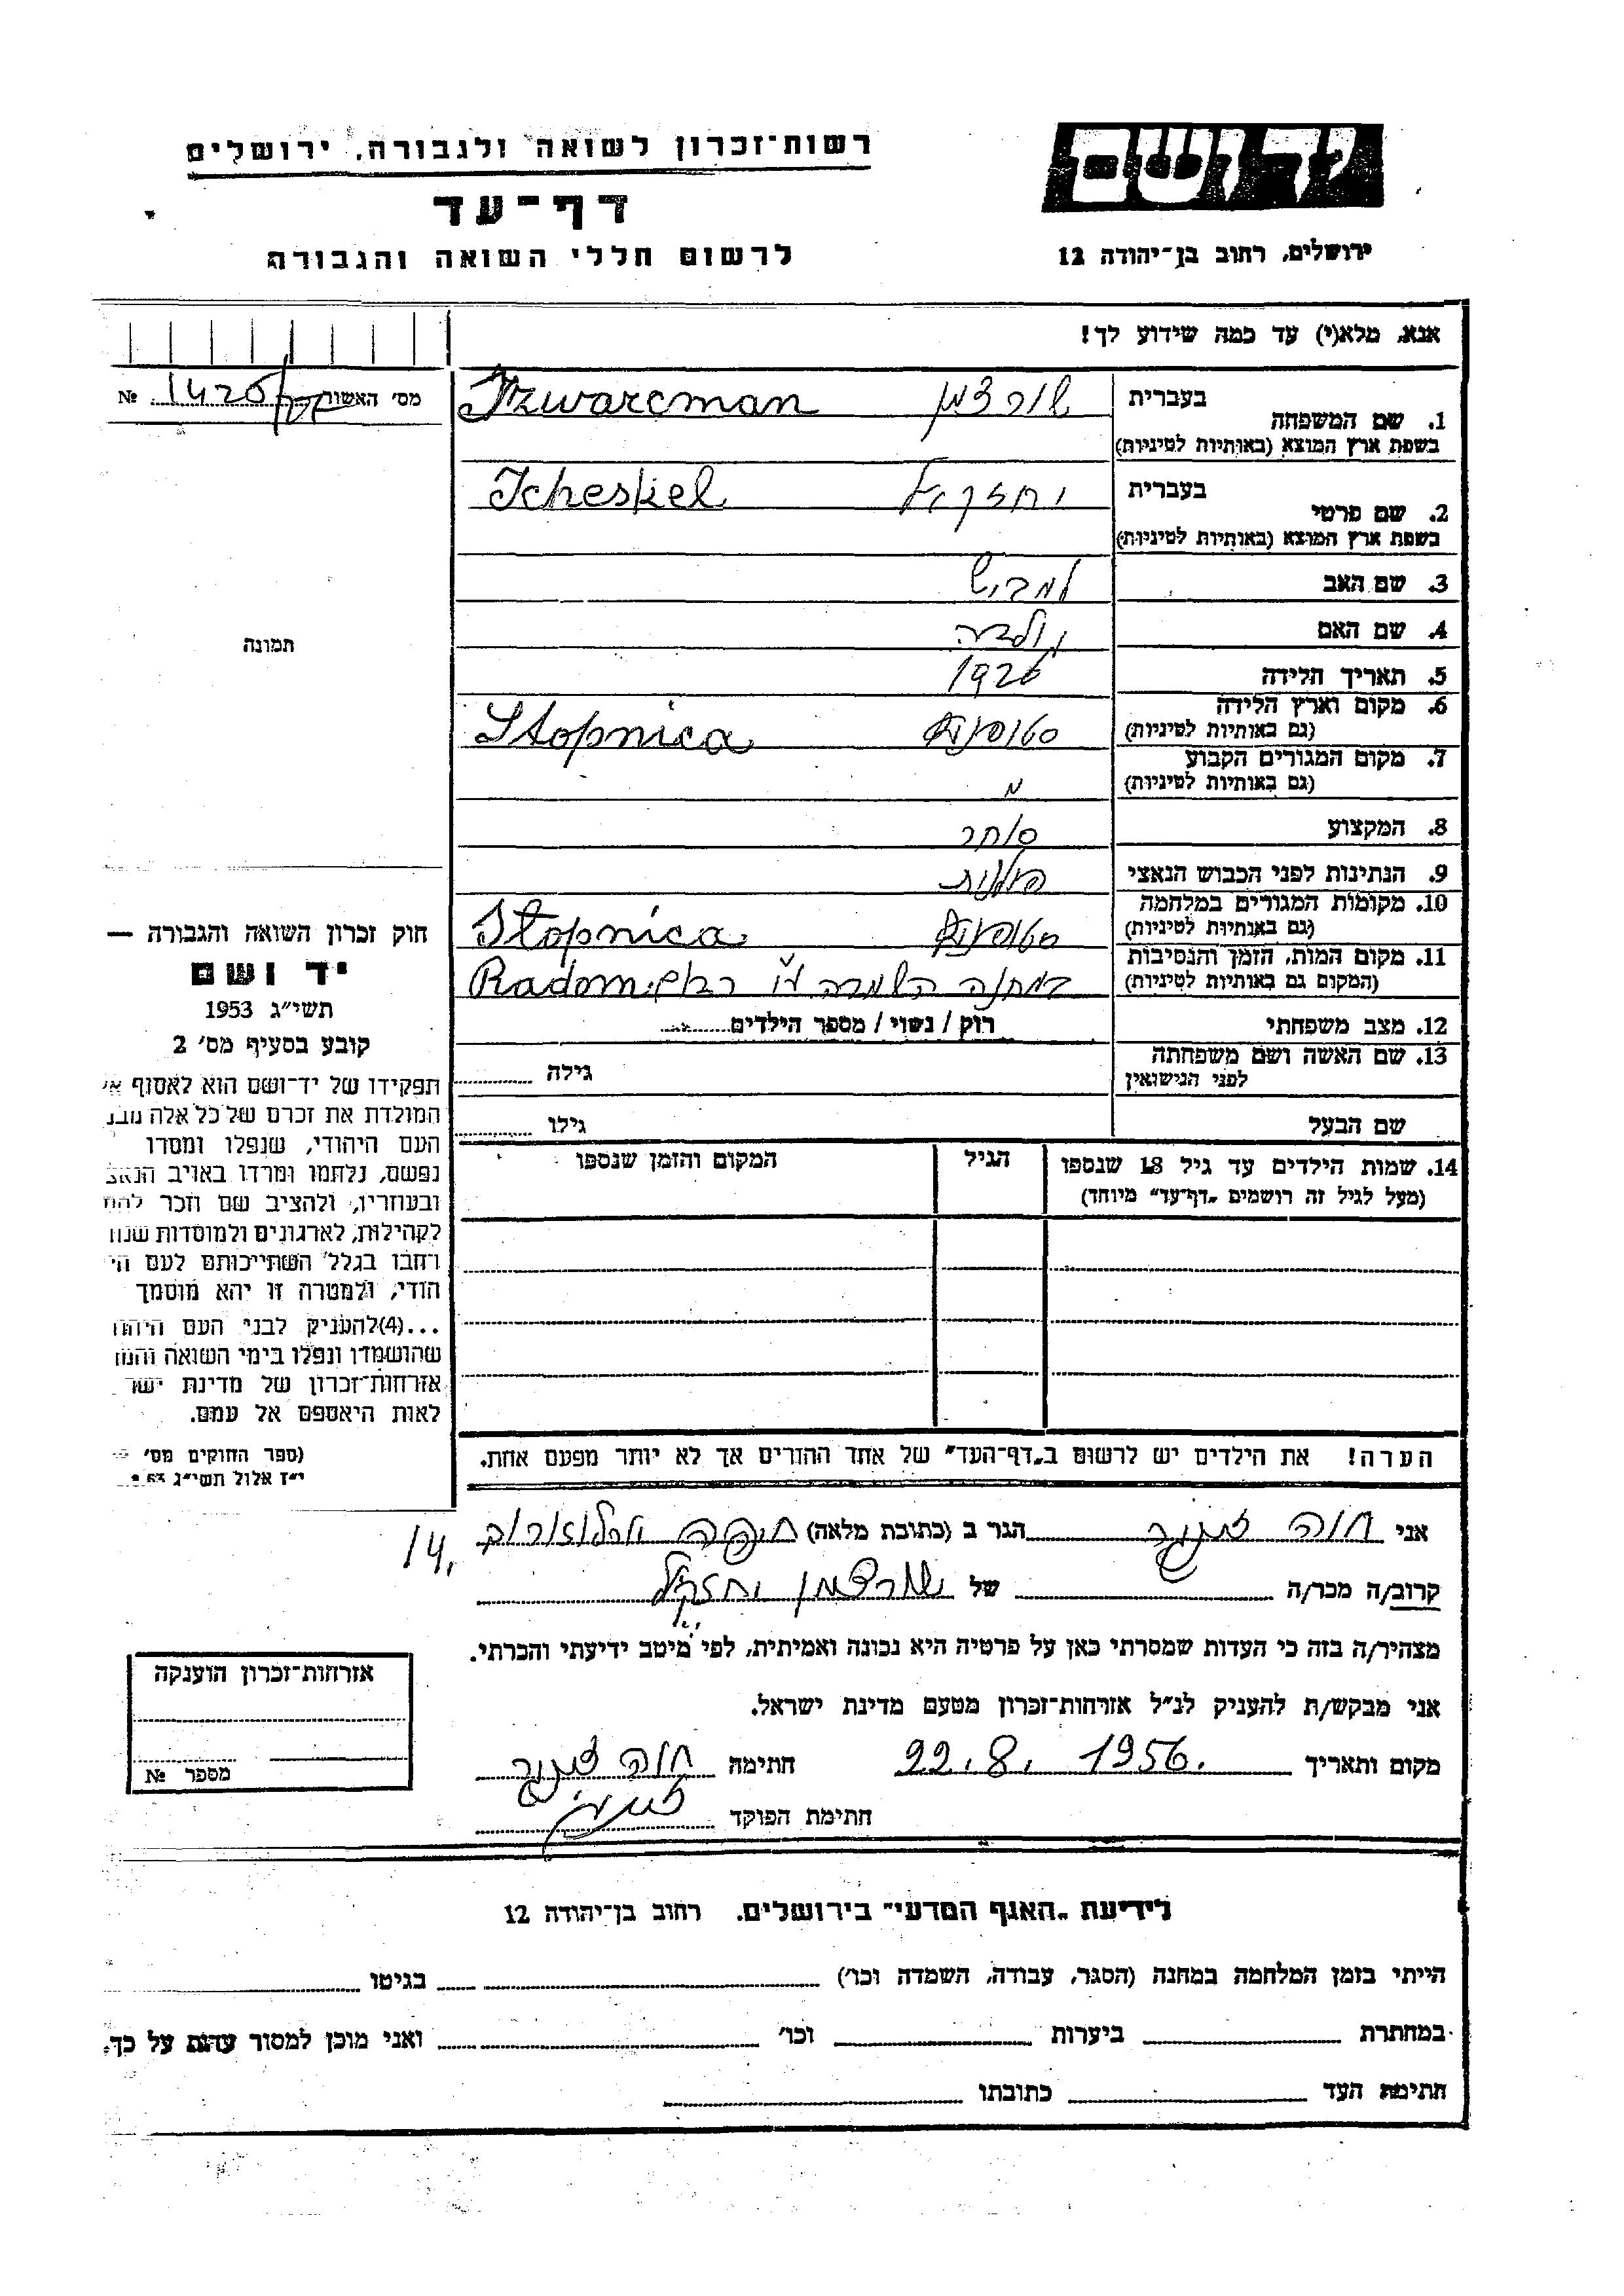 רשות־זכרון לשואה ולגבורה, ירושלים
יד ושם
דף־עד
לרשום חללי השואה והגבורה
ירושלים, רחוב בן־יהודה 12
אנא, מלא(י) עד כמה שידוע לך!
מס' האשור № 1425
1. שם המשפחה בעברית שורצמן Szwarcman
בשפת ארץ המוצא (באותיות לטיניות)
2. שם פרטי בעברית יחזקיאל Icheskiel
בשפת ארץ המוצא (באותיות לטיניות)
3. שם האב
4. שם האם
תמונה
5. תאריך הלידה 1926
6. מקום וארץ הלידה Stopnica
(גם באותיות לטיניות)
7. מקום המגורים הקבוע
(גם באותיות לטיניות)
8. המקצוע סוחר
9. הנתינות לפני הכבוש הנאצי פולנית
10. מקומות המגורים במלחמה Stopnica
(גם באותיות לטיניות)
11. מקום המות, הזמן והנסיבות במחנה השמדה Radom
(המקום גם באותיות לטיניות)
12. מצב משפחתי רוק / נשוי / מספר הילדים
13. שם האשה ושם משפחתה גילה
לפני הנישואין
שם הבעל גילו
14. שמות הילדים עד גיל 18 שנספו הגיל המקום והזמן שנספו
(מעל לגיל זה רושמים „דף־עד" מיוחד)
חוק זכרון השואה והגבורה —
יד ושם
תשי"ג 1953
קובע בסעיף מס' 2
תפקידו של יד־ושם הוא לאסוף א
המולדת את זכרם של כל אלה מבנ
העם היהודי, שנפלו ומסרו
נפשם, נלחמו ומרדו באויב הנאצ
ובעוזריו, ולהציב שם וזכר להם
לקהילות, לארגונים ולמוסדות שנח
רחבו בגלל השתייכותם לעם הי
הודי, ולמטרה זו יהא מוסמך
...(4) להעניק לבני העם היהו
שהושמדו ונפלו בימי השואה והמר
אזרחות־זכרון של מדינת ישר
לאות היאספם אל עמם.
(ספר החוקים מס'
י"ז אלול תשי"ג
הערה! את הילדים יש לרשום ב„דף־העד" של אחד ההורים אך לא יותר מפעם אחת.
אני חוה הגר ב (כתובת מלאה) חיפה 14
קרוב/ה מכר/ה של שורצמן יחזקיאל
מצהיר/ה בזה כי העדות שמסרתי כאן על פרטיה היא נכונה ואמיתית, לפי מיטב ידיעתי והכרתי.
אני מבקש/ת להעניק לנ"ל אזרחות־זכרון מטעם מדינת ישראל.
מקום ותאריך 22.8.1956. חתימה חוה
חתימת הפוקד
אזרחות־זכרון הוענקה
מספר №
לידיעת „האגף המדעי" בירושלים. רחוב בן־יהודה 12
הייתי בזמן המלחמה במחנה (הסגר, עבודה, השמדה וכו') בגיטו
במחתרת ביערות וכו' ואני מוכן למסור עדות על כך.
חתימת העד כתובתו